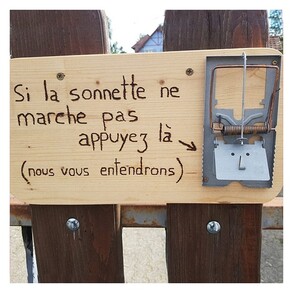 Si la sonnette ne
marche pas
appuyez là
(nous vous entendrons)